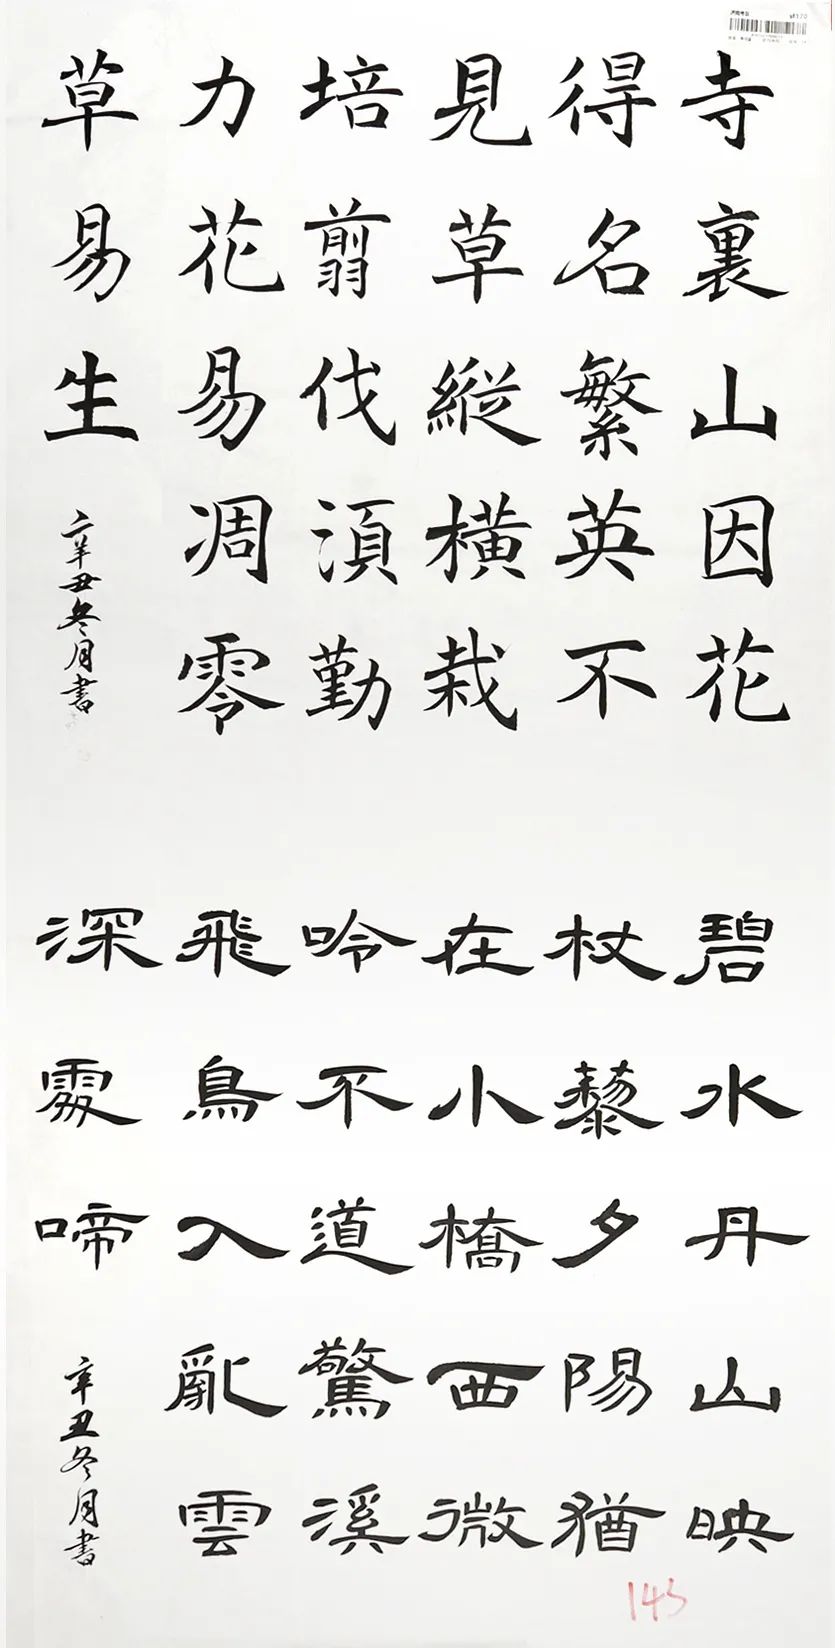 寺裏山因花
得名繁英不
見草縱橫栽
培翦伐須勤
力花易凋零
草易生
辛丑冬月書
碧水丹山映
杖藜夕陽猶
在小橋西微
吟不道驚溪
飛鳥入亂雲
深處啼
辛丑冬月書
143